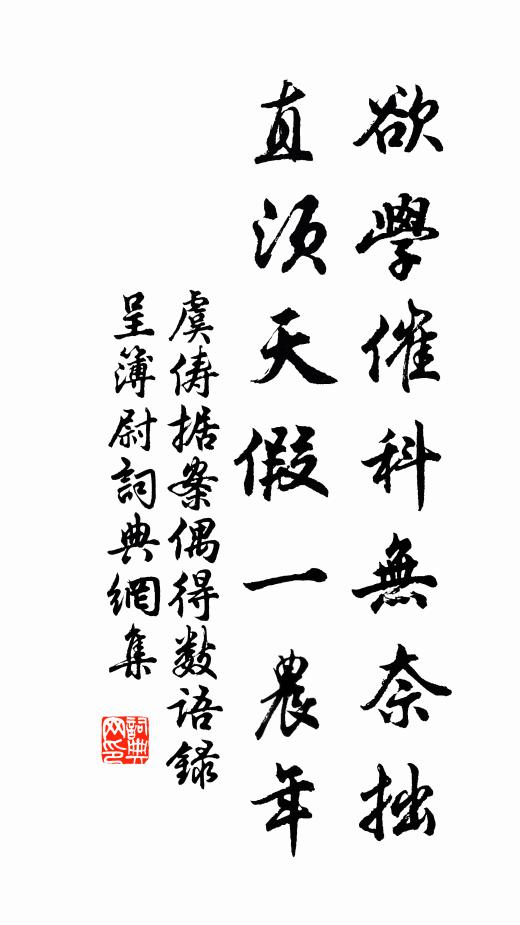 欲學催科無奈拙
直須天假一農年
虞俦据案偶得数语録
呈簿尉詞典網集
詞典网印